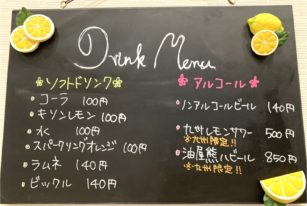 Drink Menu
❀ソフトドリンク❀
・コーラ 100円
・キリンレモン 100円
・水 100円
・スパークリングオレンジ 100円
・ラムネ 140円
・ビックル 140円
❀アルコール❀
・ノンアルコールビール 140円
・九州レモンサワー 500円
※九州限定!!
・油屋熊八ビール 850円
※九州限定!!